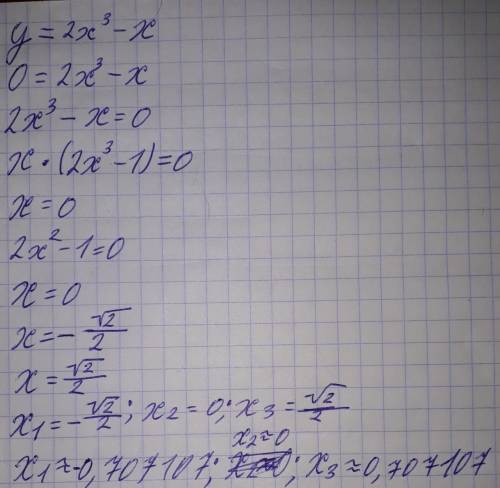 y = 2x³ - x
0 = 2x³ - x
2x³ - x = 0
x · (2x³ - 1) = 0
x = 0
2x² - 1 = 0
x = 0
x = - √2/2
x = √2/2
x₁ = - √2/2; x₂ = 0; x₃ = √2/2
x₂ ≈ 0
x₁ ≈ -0,707107; ; x₃ ≈ 0,707107